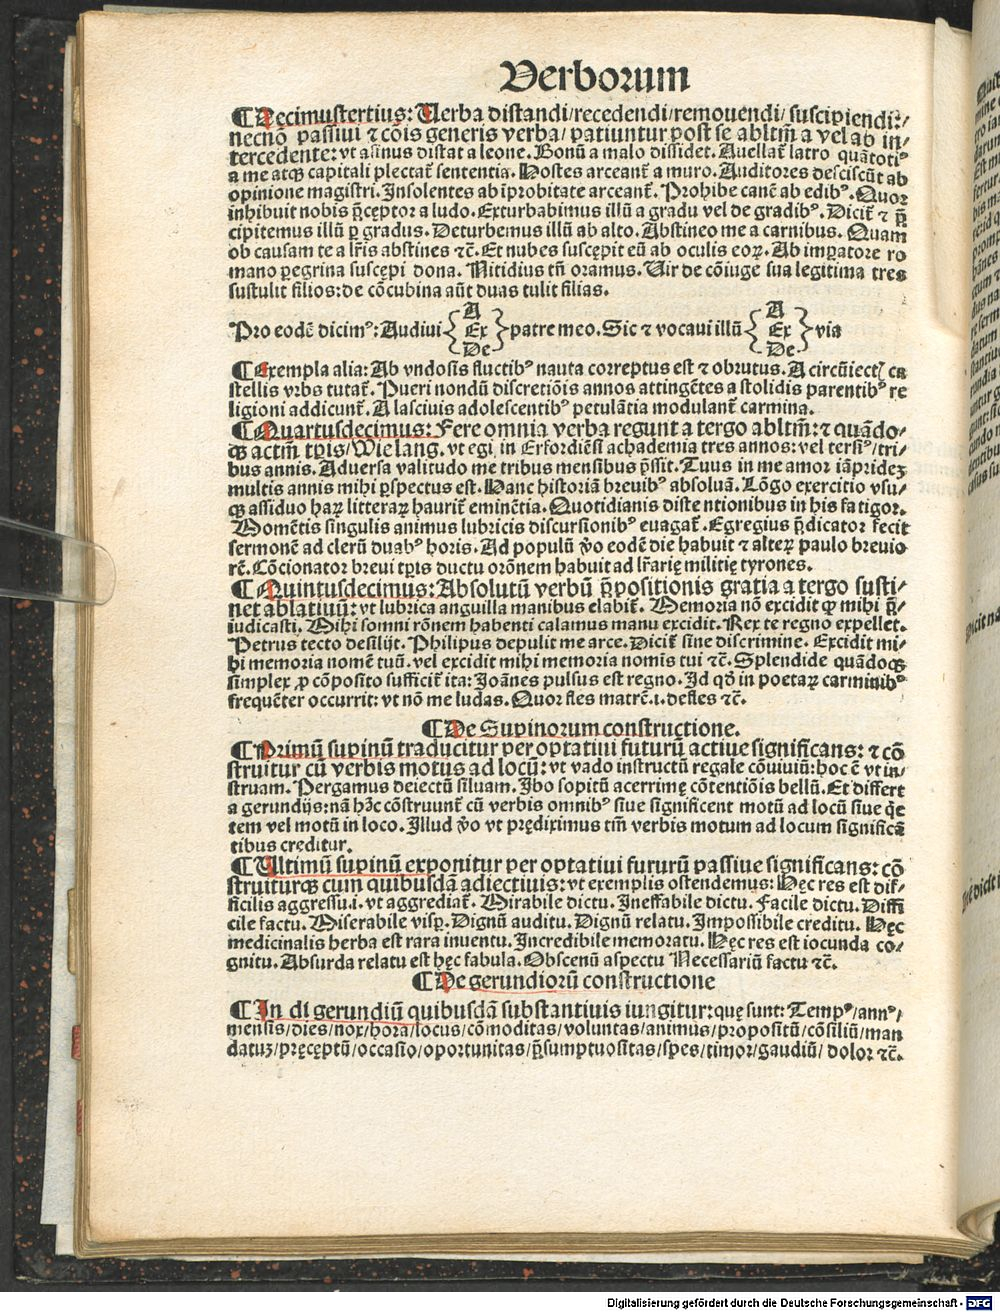 Verborum
¶ Decimustertius: Verba distandi/recedendi/remouendi/ suscipiendi:/
necnō passiui ⁊ cōis generis verba/ patiuntur post se abltm̄ a vel ab in-/
tercedente: vt asinus distat a leone. Bonū a malo dissidet. Auellat̄ latro quātotiꝰ
a me atqꝫ capitali plectat̄ sententia. Hostes arceant̄ a muro. Auditores desciscūt ab
opinione magistri. Insolentes ab īprobitate arceant̄. Prohibe canē ab edibꝰ. Quor
inhibuit nobis p̄ceptor a ludo. Exturbabimus illū a gradu vel de gradibꝰ. Dicit̄ ⁊ p̄
cipitemus illū ꝑ gradus. Deturbemus illū ab alto. Abstineo me a carnibus. Quam
ob causam te a lr̄is abstines ⁊c̄. Et nubes suscępit eū ab oculis eoꝝ. Ab imꝑatore ro
mano ꝑegrina suscępi dona. Nitidius tn̄ oramus. Uir de cōiuge sua legitima tres
sustulit filios: de cōcubina aūt duas tulit filias.
Pro eodē dicimꝰ: Audiui { A Ex De } patre meo. Sic ⁊ vocaui illū { A Ex De } via
¶ Exempla alia: Ab vndosis fluctibꝰ nauta correptus est ⁊ obrutus. A circūiectꝭ ca
stellis vrbs tutat̄. Pueri nondū discretiōis annos attingētes a stolidis parentibꝰ re
ligioni addicunt̄. A lasciuis adolescentibꝰ petulātia modulant̄ carmina.
¶ Quartusdecimus: Fere omnia verba regunt a tergo abltm̄: ⁊ quādo-/
qꝫ actm̄ tꝑis/ Wie lang. vt egi in Erfordiēsi achademia tres annos: vel tersiꝰ/tri/
bus annis. Aduersa valitudo me tribus mensibus p̄ssit. Tuus in me amor iāprideꝫ
multis annis mihi ꝑspectus est. Hanc historiā breuibꝰ absoluā. Lōgo exercitio vsu/
qꝫ assiduo haꝝ litteraꝝ haurit̄ eminētia. Quotidianis distentionibus in his fatigor.
Momētis singulis animus lubricis discursionibꝰ euagat̄. Egregius p̄dicator fecit
sermonē ad clerū duabꝰ horis. Ad populū v̄o eodē die habuit ⁊ alteꝝ paulo breuio
rē. Cōcionator breui tꝑis ductu orōnem habuit ad lr̄arię militię tyrones.
¶ Quintusdecimus: Absolutū verbū p̄positionis gratia a tergo susti-/
net ablatiuū: vt lubrica anguilla manibus elabit̄. Memoria nō excidit ꝙ mihi p̄/
iudicasti. Mihi somni rōnem habenti calamus manu excidit. Rex te regno expellet.
Petrus tecto desilijt. Philipus depulit me arce. Dicit̄ sine discrimine. Excidit mi-
hi memoria nomē tuū. vel excidit mihi memoria nomīs tui ⁊c̄. Splendide quādoqꝫ
simplex ꝓ cōposito sufficit̄ ita: Joānes pulsus est regno. Id qđ in poetaꝝ carminibꝰ
frequēter occurrit: vt nō me ludas. Quor fles matrē .i. defles ⁊c̄.
¶ De Supinorum constructione.
¶ Primū supinū traducitur per optatiui futurū actiue significans: ⁊ cō
struitur cū verbis motus ad locū: vt vado instructū regale cōuiuiū: hoc ē vt in/
struam. Pergamus deiectū siluam. Ibo sopitū acerrimę cōtentiōis bellū. Et differt
a gerundijs: nā hęc cōstruunt̄ cū verbis omnibꝰ siue significent motū ad locū siue q̄e
tem vel motū in loco. Illud v̄o vt prędiximus tm̄ verbis motum ad locum significā
tibus creditur.
¶ Ultimū supinū exponitur per optatiui fururū passiue significans: cō
struiturqꝫ cum quibusdā adiectiuis: vt exemplis ostendemus: Hęc res est dif-/
ficilis aggressu .i. vt aggrediat̄. Mirabile dictu. Ineffabile dictu. Facile dictu. Diffi
cile factu. Miserabile visu. Dignū auditu. Dignū relatu. Impossibile creditu. Hęc
medicinalis herba est rara inuentu. Incredibile memoratu. Hęc res est iocunda co-/
gnitu. Absurda relatu est hęc fabula. Obscenū aspectu Necessariū factu ⁊c̄.
¶ De gerundiorū constructione
¶ In di gerundiū quibusdā substantiuis iungitur: quę sunt: Tempꝰ/annꝰ/
mensis/dies/nox/hora/locus/cōmoditas/voluntas/animus/propositū/cōsiliū/man
datuꝫ/pręcęptū/occasio/oportunitas/p̄sumptuositas/spes/timor/gaudiū/ dolor ⁊c̄.
Digitalisierung gefördert durch die Deutsche Forschungsgemeinschaft - DFG